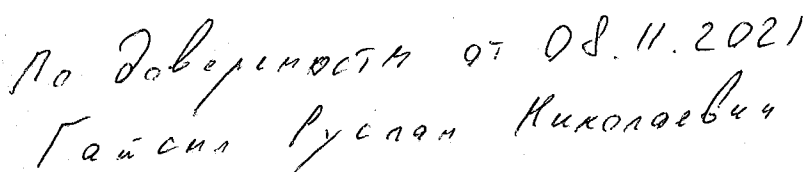 По доверенности от 08.11.2021
Гайсин Руслан Николаевич